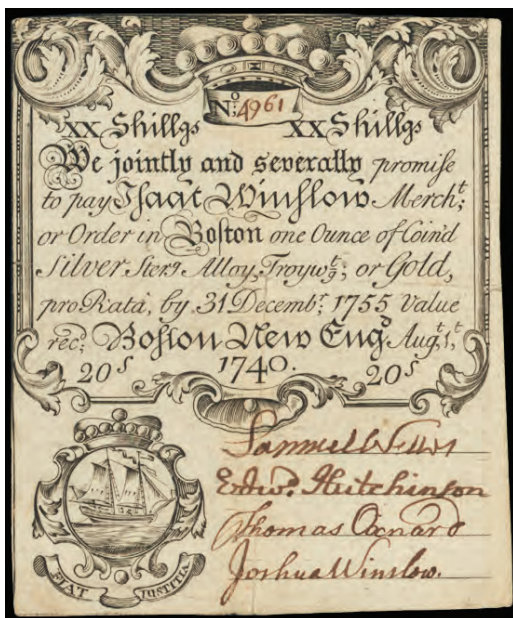 No: 4961
XX Shillgs XX Shillgs
We jointly and severally promise
to pay Isaac Winslow Mercht;
or Order in Boston one Ounce of Coin'd
Silver Sterg Alloy, Troywt; or Gold,
pro Rata, by 31 Decembr: 1755 Value
recd: Boston New Engd Augt, 1,t
20s 1740. 20s
Samuel Welles
Edwd. Hutchinson
Thomas Oxnard
Joshua Winslow.
FIAT JUSTITIA